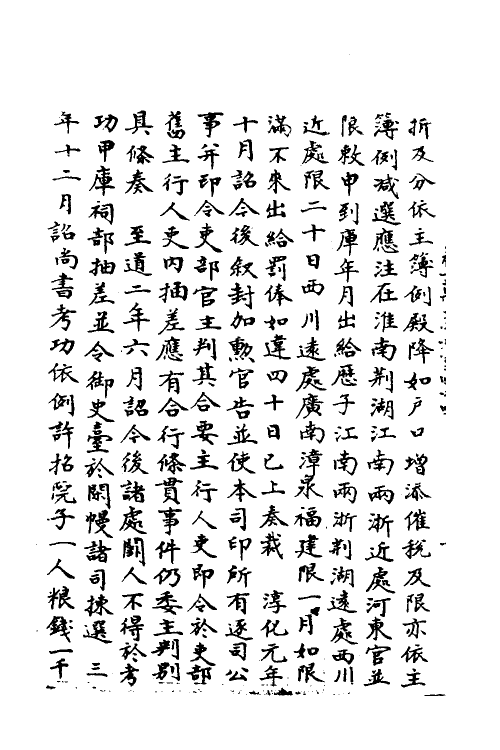 折及分依主簿例殿降如户口增添催稅及限亦依主
簿例減選應注在淮南荆湖江南兩浙近處河東官並
限敕申到庫年月出給歷子江南兩浙荆湖遠處西川
近處限二十日西川遠處廣南漳泉福建限一月如限
滿不來出給罰俸如違四十日已上奏裁　淳化元年
十月詔令後叙封加勲官告並使本司印所有逐司公
事并印令吏部官主判其合要主行人吏即令於吏部
舊主行人吏内抽差應有合行條貫事件仍委主判别
具條奏　至道二年六月詔今後諸處闕人不得於考
功甲庫祠部抽差並令御史臺於閑慢諸司揀選　三
年十二月詔尚書考功依例許招院子一人粮錢一千